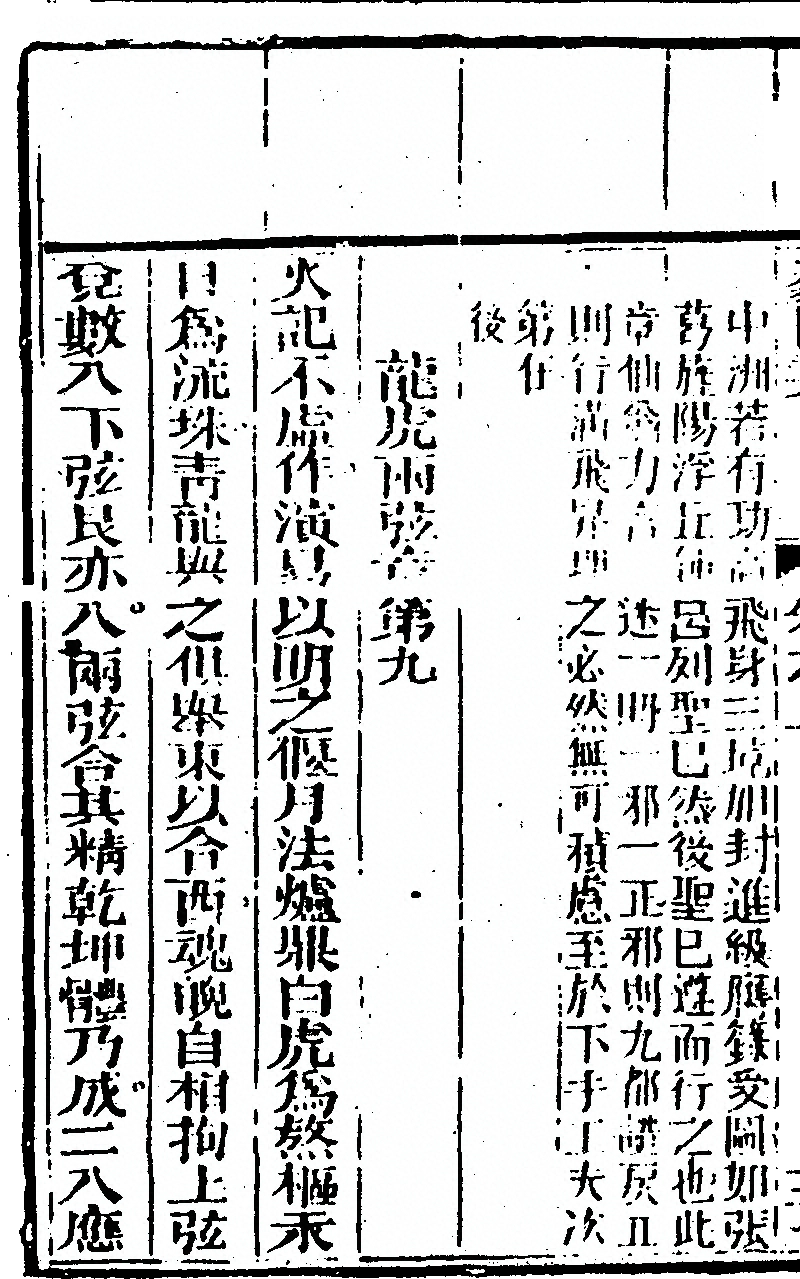 中洲若有功高飛身三境加封進級膺籙受圖如張
葛旌陽浮丘鍾呂列聖已然後聖已進而行之也此
章仙翁力言述一時一邪一正邪則九都譴戾正
則行滿飛昇理之必然無可積慮至於下手工夫次
第在
後
龍虎兩弦章第九
火記不虛作演易以明之偃月法爐鼎白虎為熬樞汞
日為流珠青龍與之俱舉東以合西魂魄自相拘上弦
兌數八下弦艮亦八兩弦合其精乾坤體乃成二八應